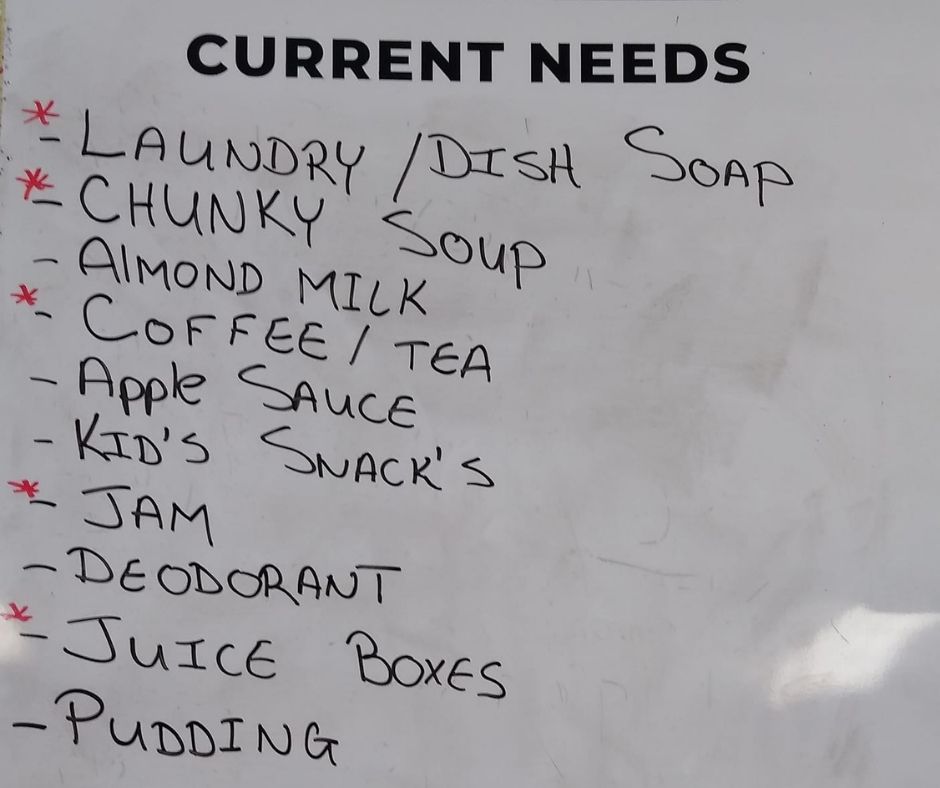 CURRENT NEEDS
*- LAUNDRY /DISH SOAP
*- CHUNKY SOUP
- AlMOND MILK
*- COFFEE / TEA
- Apple SAUCE
- KID'S SNACK'S
*- JAM
- DEODORANT
*- JUICE BOXES
- PUDDING